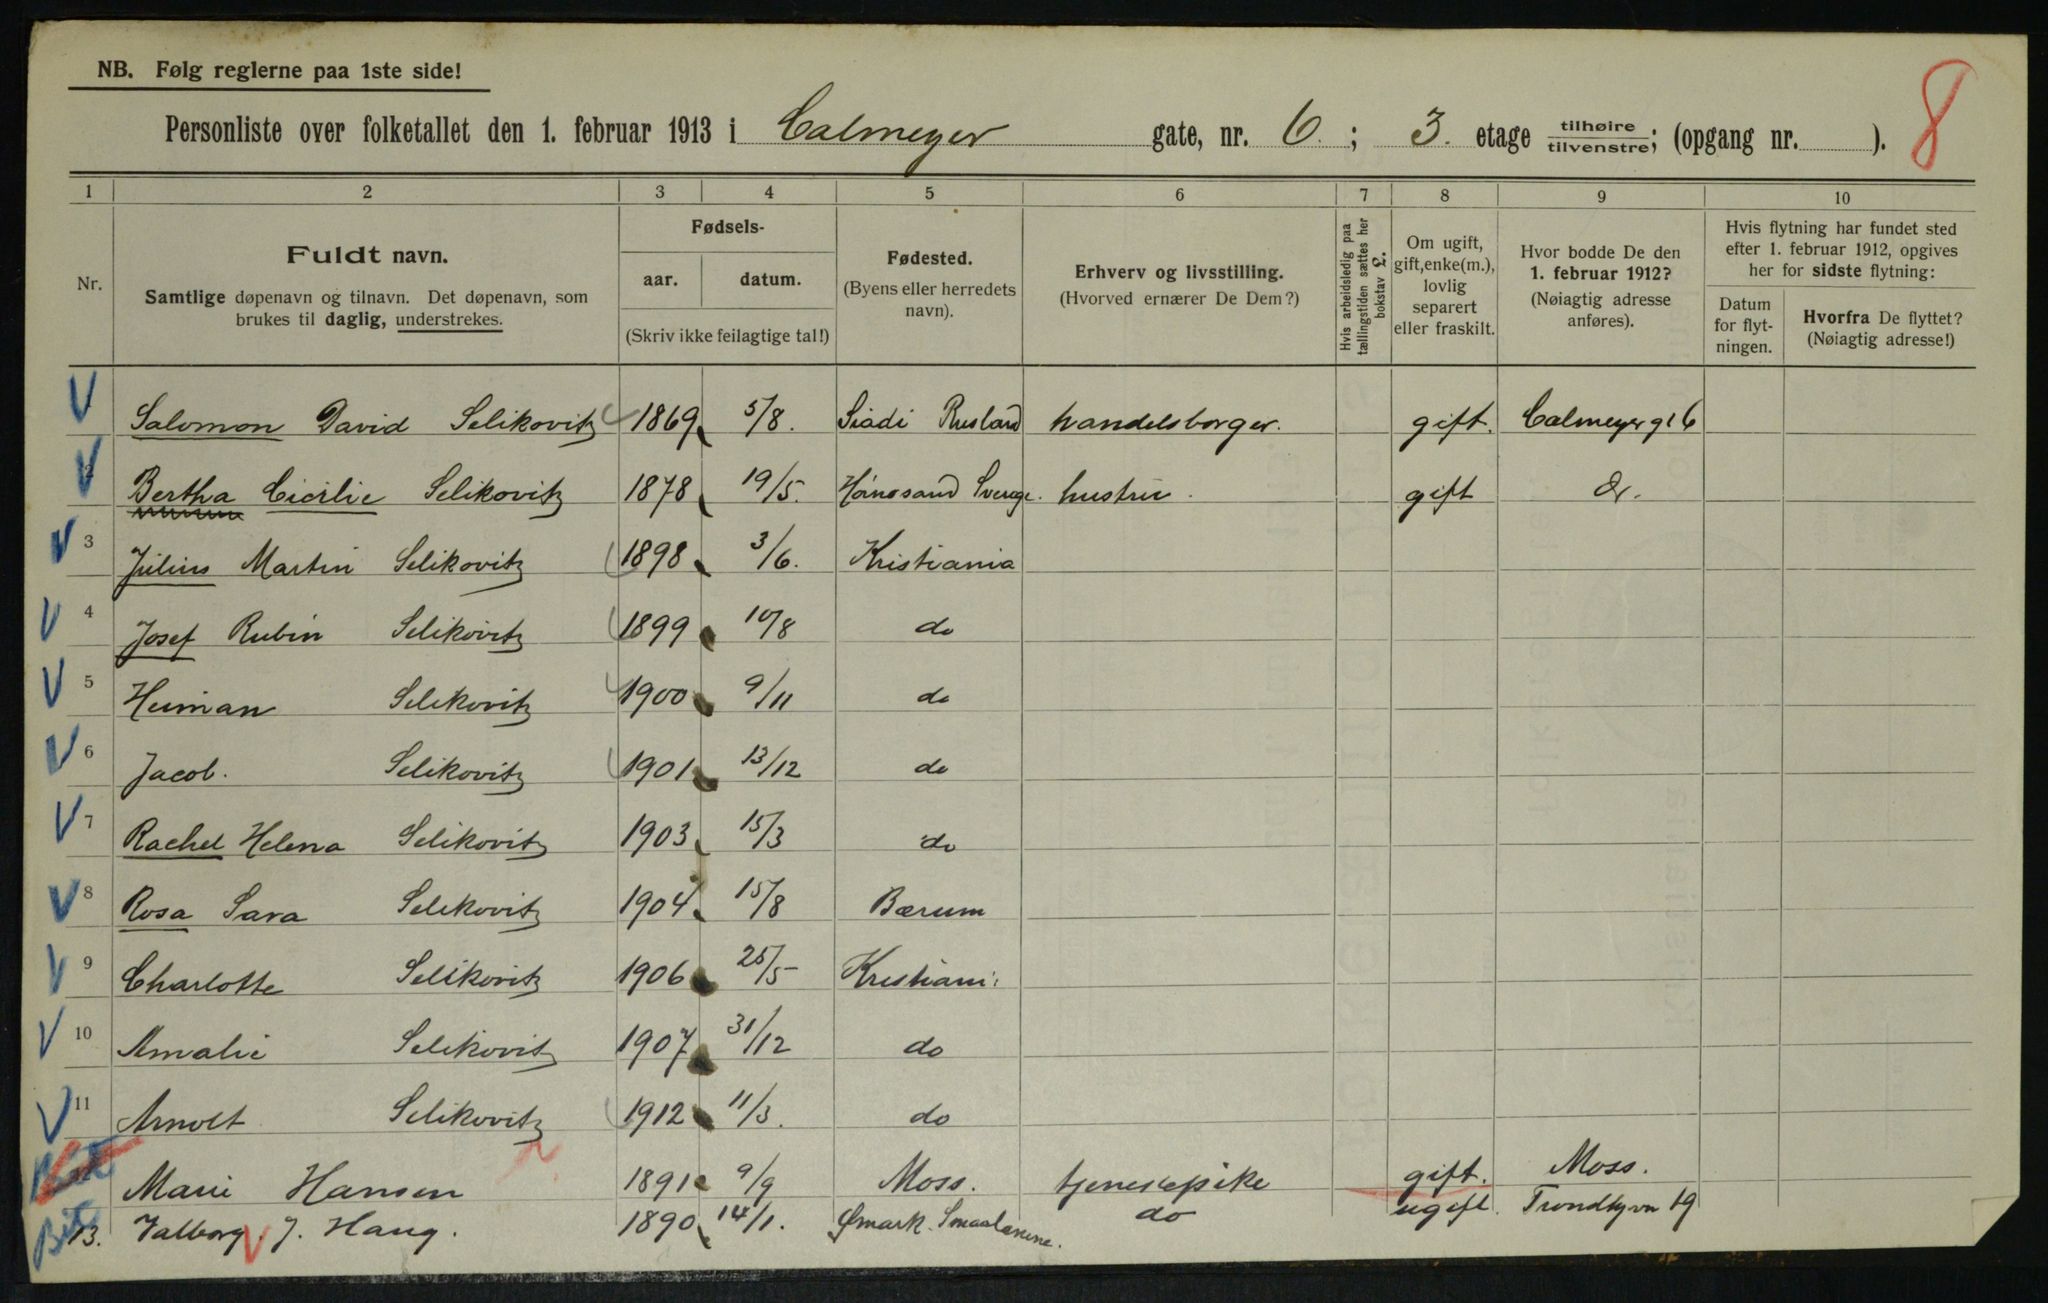 NB. Følg reglerne paa 1ste side!
8
Personliste over folketallet den 1. februar 1913 i Calmeyer gate, nr. 6. ; 3. etage tilhøire / tilvenstre; (opgang nr. ).
1 2 3 4 5 6 7 8 9 10
Nr.
Fuldt navn.
Samtlige døpenavn og tilnavn. Det døpenavn, som brukes til daglig, understrekes.
Fødsels-
aar. datum.
(Skriv ikke feilagtige tal!)
Fødested.
(Byens eller herredets navn).
Erhverv og livsstilling.
(Hvorved ernærer De Dem?)
Hvis arbeidsledig paa tællingstiden sættes her bokstav L.
Om ugift, gift, enke(m.), lovlig separert eller fraskilt.
Hvor bodde De den 1. februar 1912?
(Nøiagtig adresse anføres).
Hvis flytning har fundet sted efter 1. februar 1912, opgives her for sidste flytning:
Datum for flyt-ningen.
Hvorfra De flyttet?
(Nøiagtig adresse!)
Salomon David Selikovitz 1869 5/8. Siadi Rusland handelsborger. gift. Calmeyergt 6
2 Bertha Cicilie Selikovitz 1878 19/5. Hånosand Sverige. hustru. gift do.
3 Julius Martin Selikovitz 1898 3/6. Kristiania
4 Josef Rubin Selikovitz 1899 10/8 do
5 Heiman Selikovitz 1900 9/11 do
6 Jacob. Selikovitz 1901 13/12 do
7 Rachel Helena Selikovitz 1903 15/3 do
8 Rosa Sara Selikovitz 1904 15/8 Bærum
9 Charlotte Selikovitz 1906 25/5 Kristiani:
10 Amalie Selikovitz 1907 31/12 do
11 Arnolt Selikovitz 1912 11/3. do
Marie Hansen 1891 9/9 Moss. tjenestepike gift. Moss.
13. Valborg J. Haug. 1890 14/1. Ømark. Smaalenene. do ugift. Trondhjvn 19